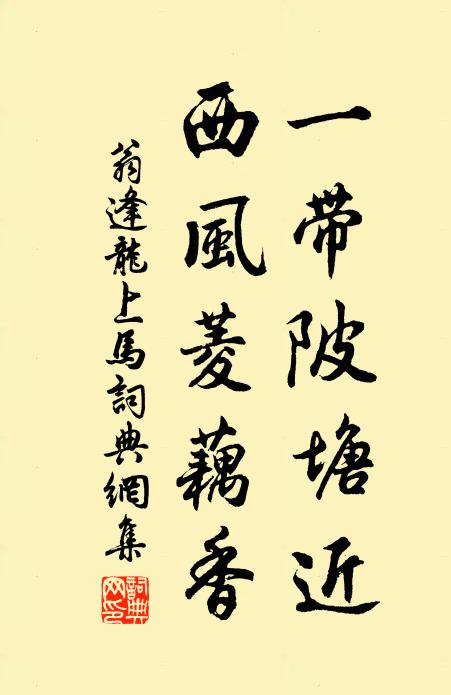 一帶陂塘近
西風菱藕香
翁逢龍上馬詞典網集
詞典
网印